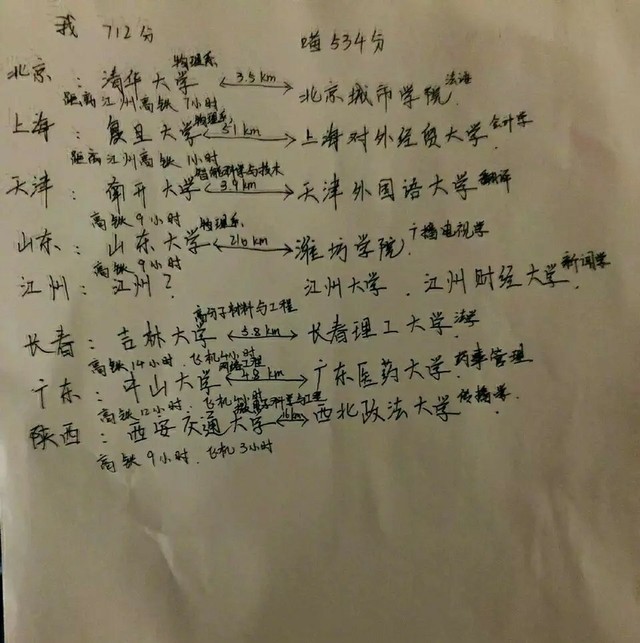 我 712分 喵534分
物理系
北京：清华大学 3.5km 北京城市学院 法语
距离江州高铁7小时
物理系
上海：复旦大学 51km 上海对外经贸大学 会计学
距离江州高铁1小时
智能科学与技术
天津：南开大学 3.9km 天津外国语大学 翻译
高铁9小时
物理系
山东：山东大学 216km 潍坊学院 广播电视学
高铁9小时
江州：江州？ 江州大学．江州财经大学 新闻学
高分子材料与工程
长春：吉林大学 5.8km 长春理工大学 法学
高铁14小时．飞机4小时
网络工程
广东：中山大学 48km 广东医药大学 药事管理
高铁12小时．飞机 小时
科学与工程
陕西：西安交通大学 16km 西北政法大学 传播学
高铁9小时．飞机3小时